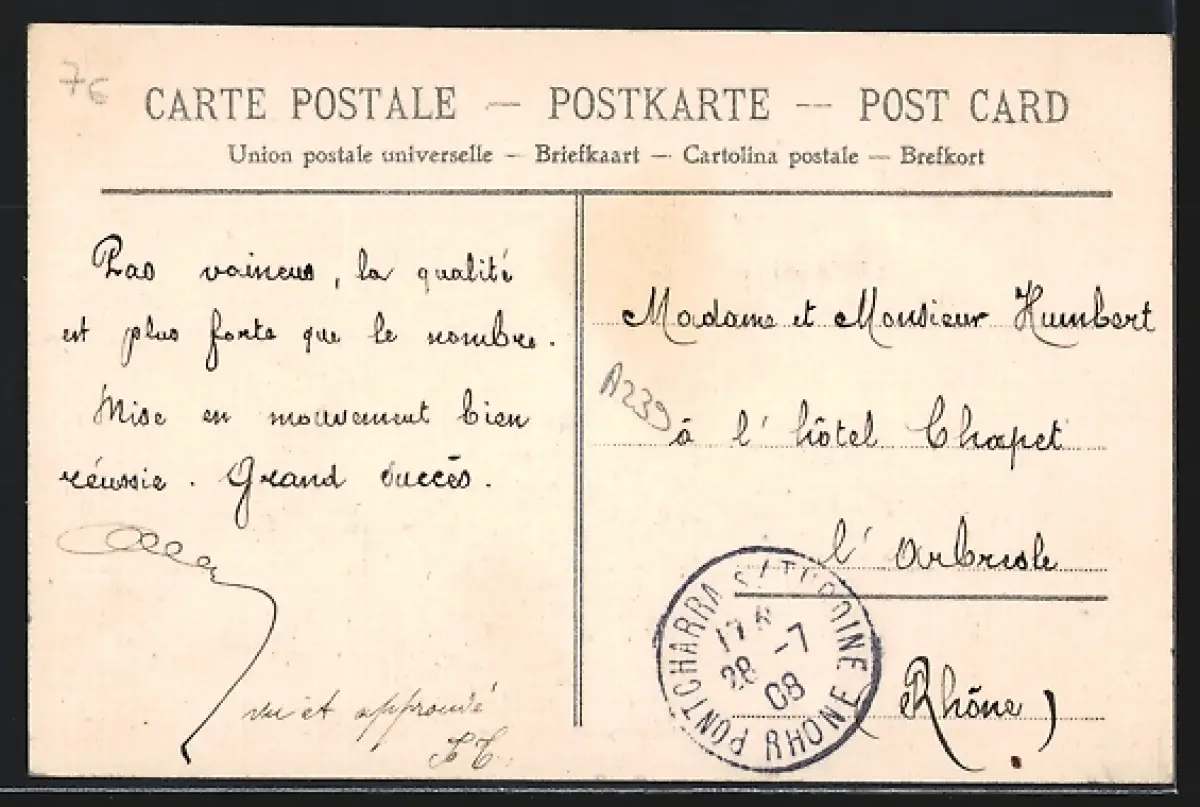 76
CARTE POSTALE — POSTKARTE — POST CARD
Union postale universelle — Briefkaart — Cartolina postale — Brefkort
Pas vaincus, la qualité
est plus forte que le nombre.
Mise en mouvement bien
réussie. Grand succès.
vu et approuvé
Madame et Monsieur Humbert
A239
à l'hôtel Chapet
l'Arbresle
(Rhône)
PONTCHARRA S/TURDINE RHONE
28 -7
08